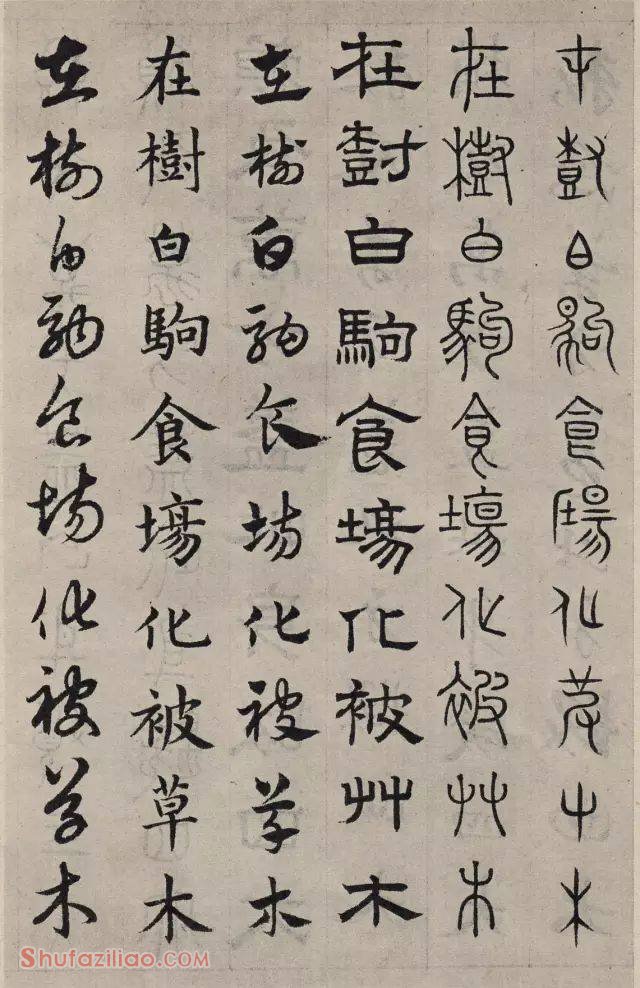 在樹白駒食場化被草木
在樹白駒食場化被艸木
在尌白駒食場化被艸木
在樹白駒食場化被草木
在樹白駒食場化被草木
在樹白駒食場化被草木
Shufaziliao.com